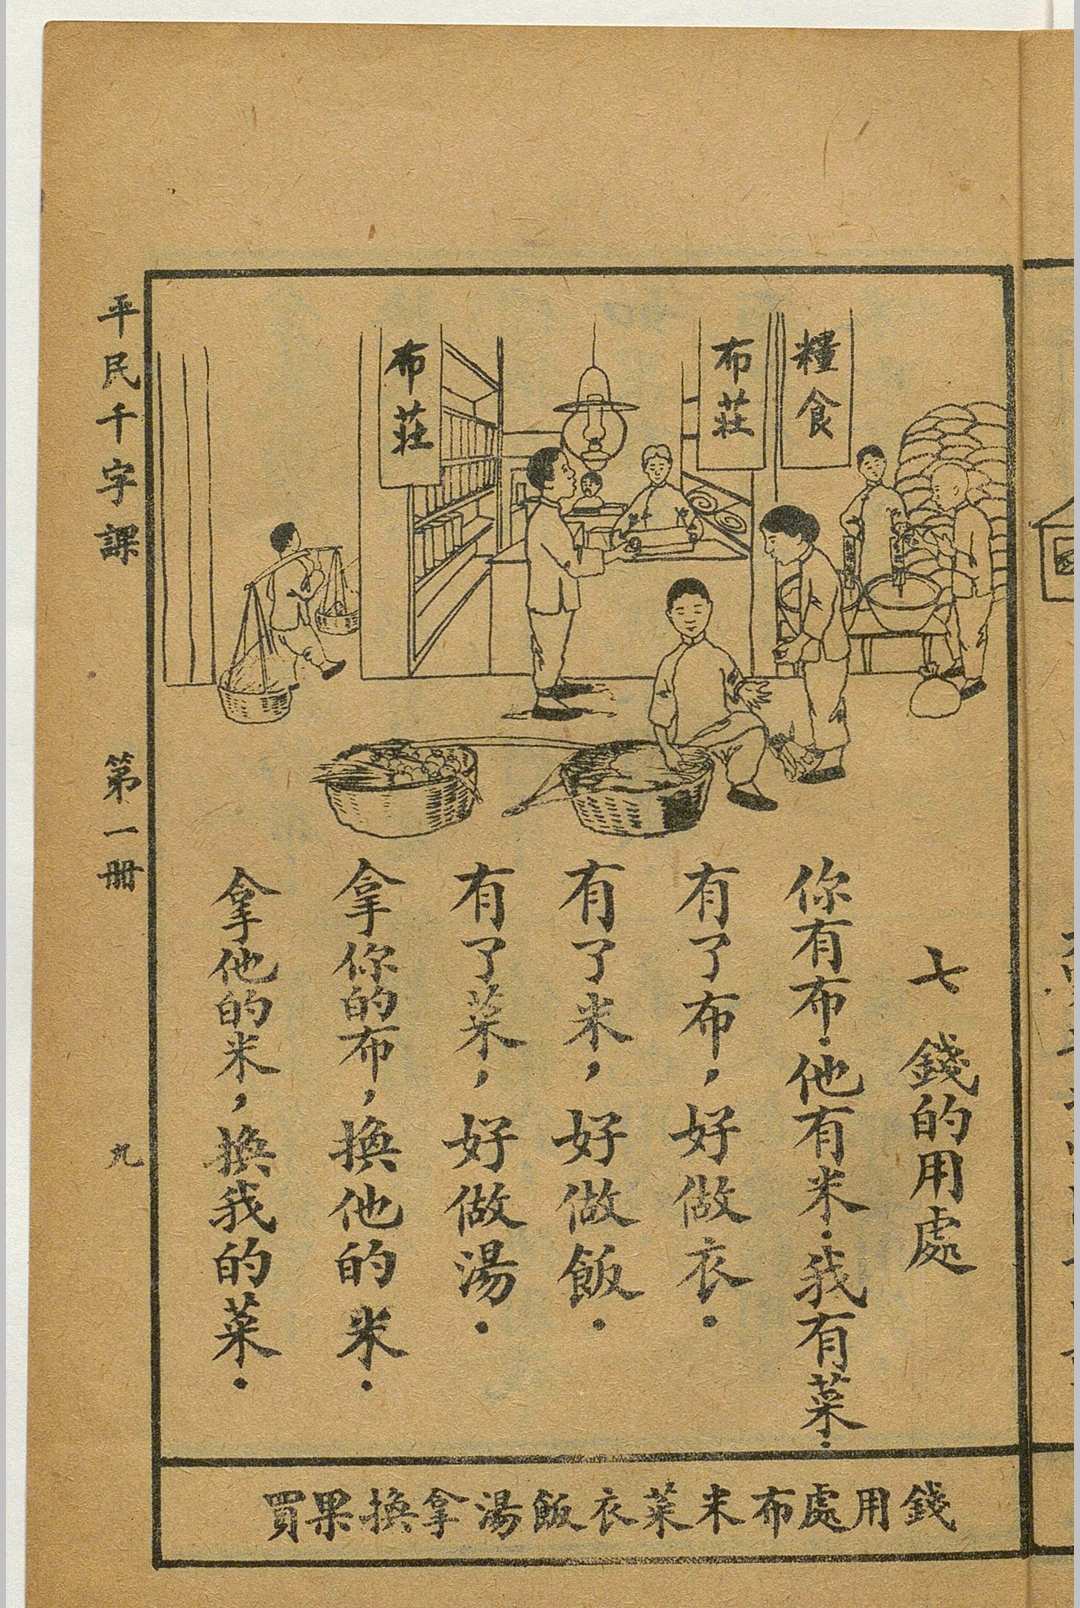 糧食
布莊
布莊
七 錢的用處
你有布．他有米．我有菜．
有了布，好做衣．
有了米，好做飯．
有了菜，好做湯．
拿你的布，換他的米．
拿他的米，換我的菜．
錢用處布米菜衣飯湯拿換果買
平民千字課 第一冊 九